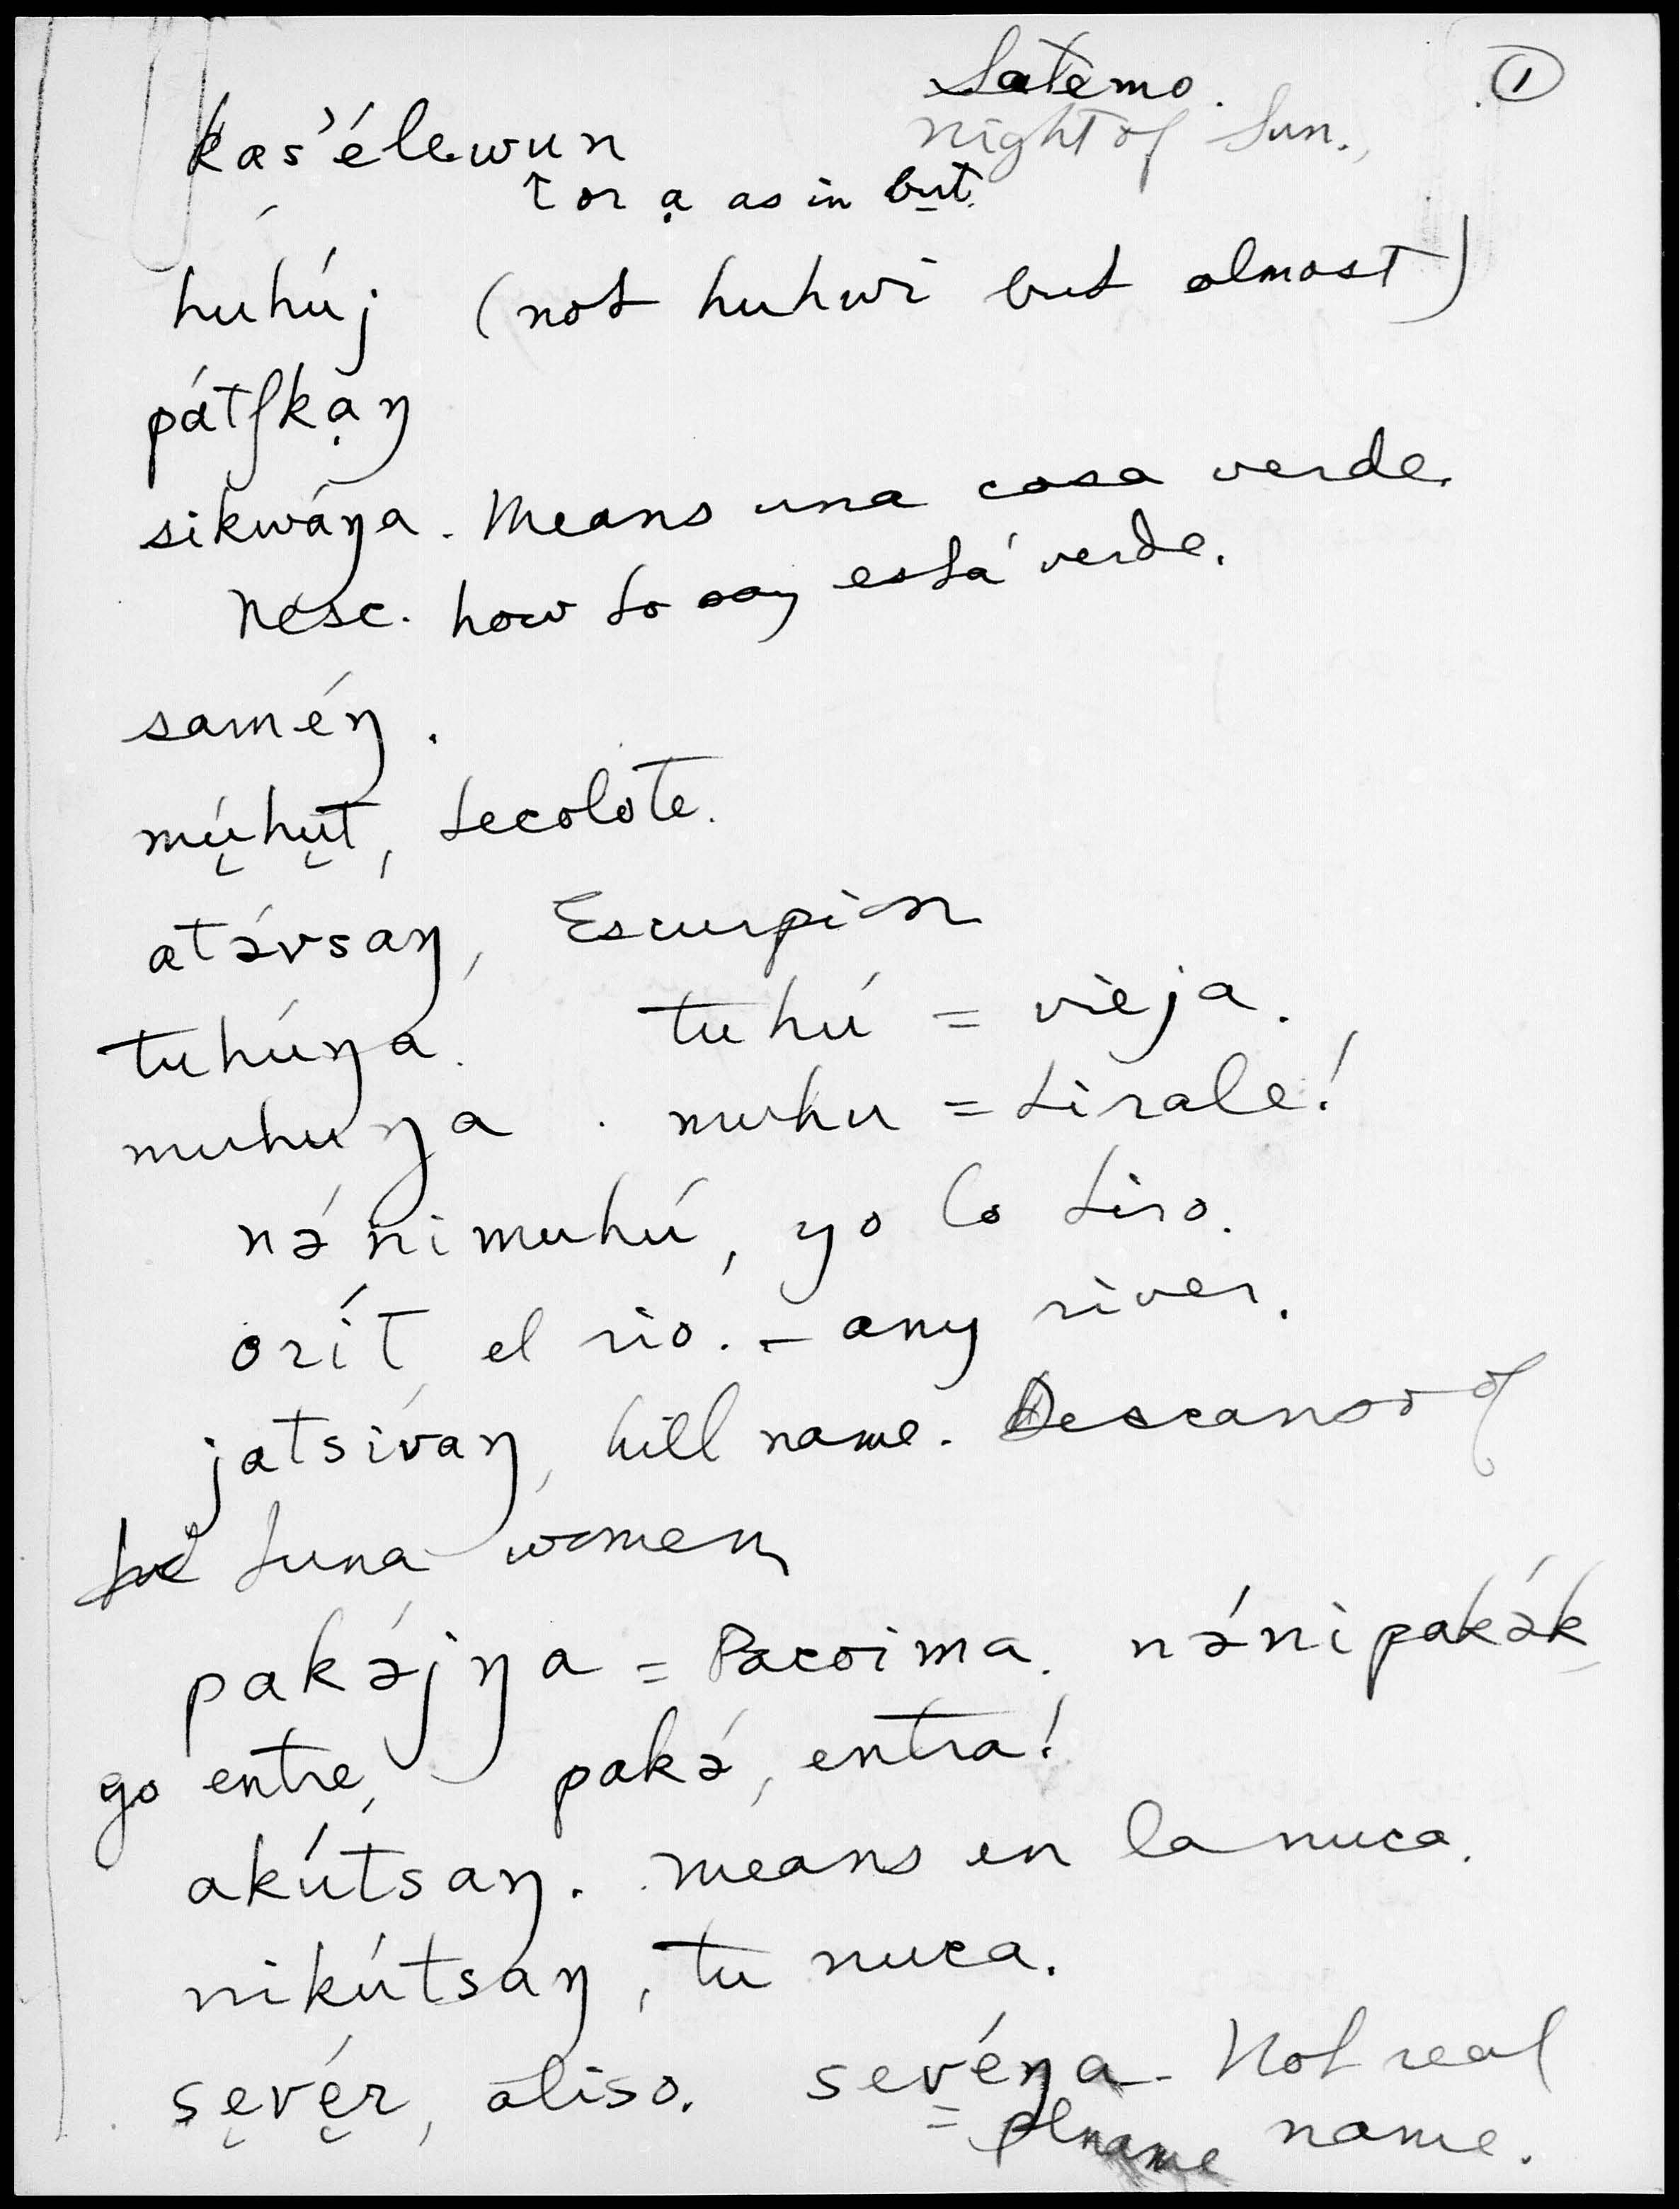 Satemo. ①
night of Sun.
kas’élewun
↑ or ạ as in but.
huhúj (not huhwi but almost)
pátʃkạŋ
sikwáŋa. Means una cosa verde.
Nesc. how to say está verde.
saméŋ.
mų́hųt, tecolote.
atǝ́vsaŋ, Escurpion
tuhúŋa. tuhú = vieja.
muhuŋa. muhu = tirale!
nǝ́nimuhú, yo lo tiro.
orít, el rio. – any river.
jatsívaŋ, hill name. Descanso of
Luna women
pakǝ́jŋa = Pacoima. nǝ́nipakǝ́k
yo entre, pakǝ́, entra!
akútsaŋ. means en la nuca.
nikútsaŋ, tu nuca.
sęvę́r, aliso. sevéŋa. Not real
= plname name.